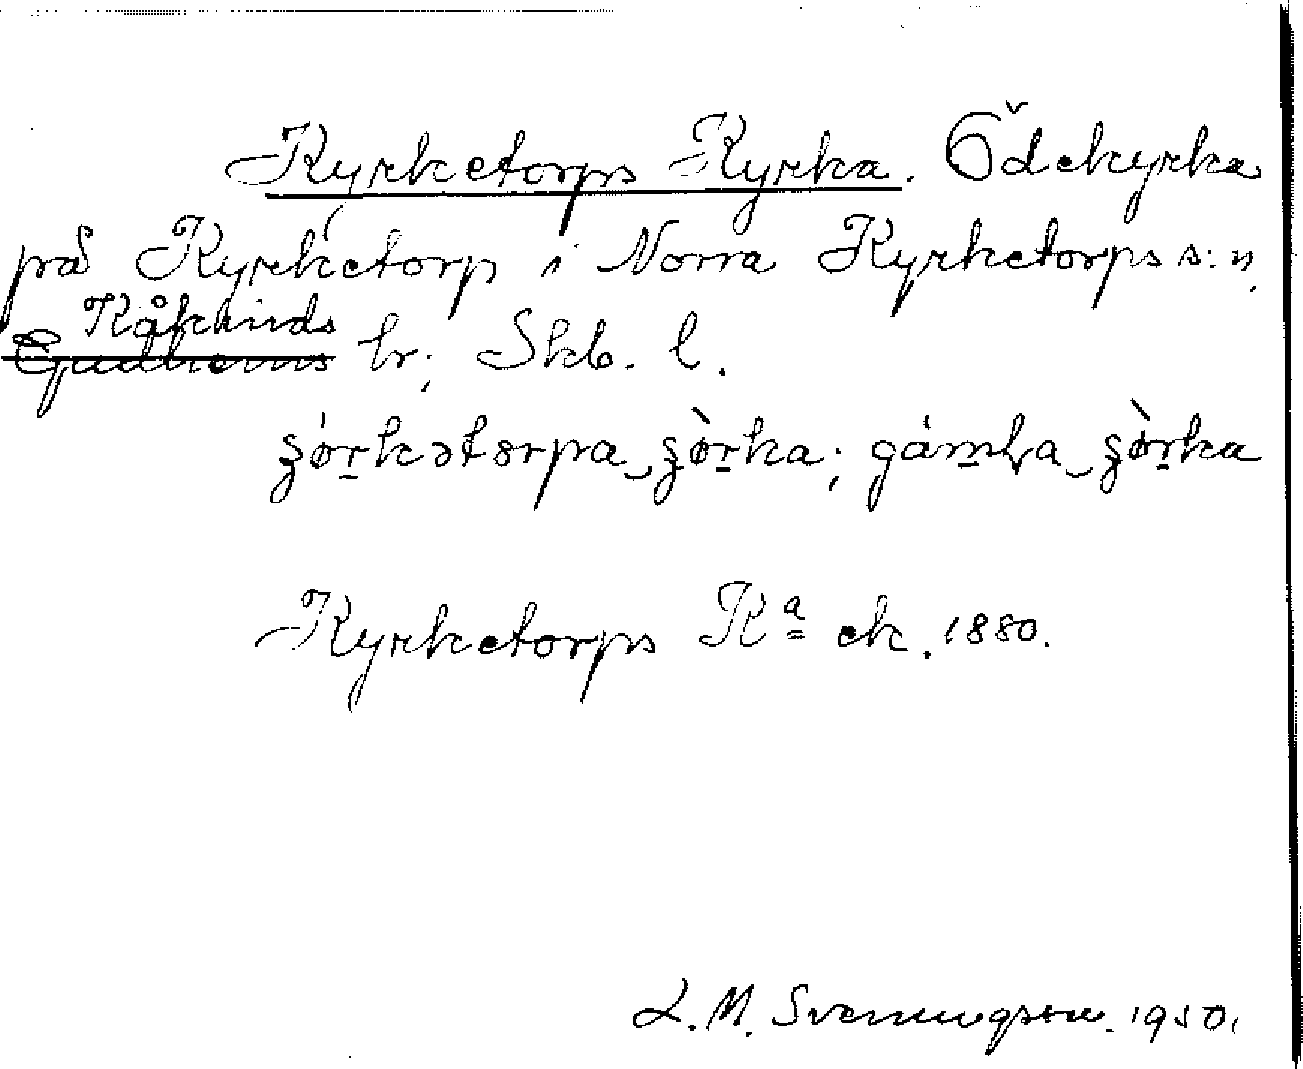 Kyrketorps Kyrka. Ödekyrka
på Kyrketorp i Norra Kyrketorps s:n,
Kåkinds
Gudhems hr; Skb. l.
ʂǿr̠kətɵrpa‿ʂø̀r̠ka; gám̠ɬa‿ʂø̀r̠ka
Kyrketorps Kª ek. 1880.
L. M. Svenungsson. 1950.